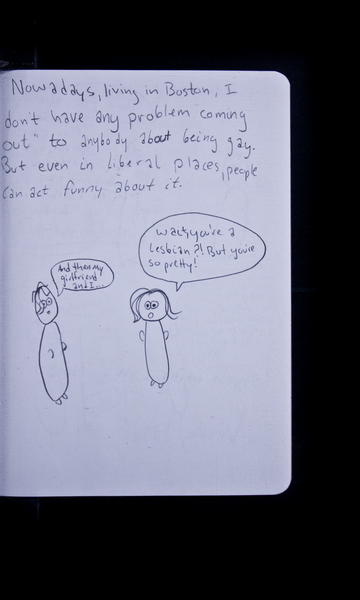 Nowadays, living in Boston, I
don't have any problem "coming
out" to anybody about being gay.
But even in liberal places, people
can act funny about it.
And then my
girlfriend
and I...
Wait, you're a
lesbian?! But you're
so pretty!